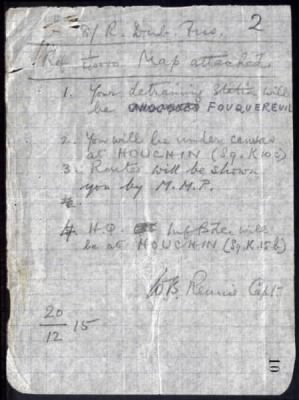 2
8/R. Dub. Fus.
Ref 1/40000 Map attached
1. Your detraining station will
be FOUQUEREUIL
2. You will be under canvas
at HOUCHIN (Sq. K 10 c)
3. Routes will be shown
you by M.M.P.
4 H.Q. Inf Bde. will
be at HOUCHIN (Sq. K.15.b)
W B. Rennie Capt
20
12 15
10